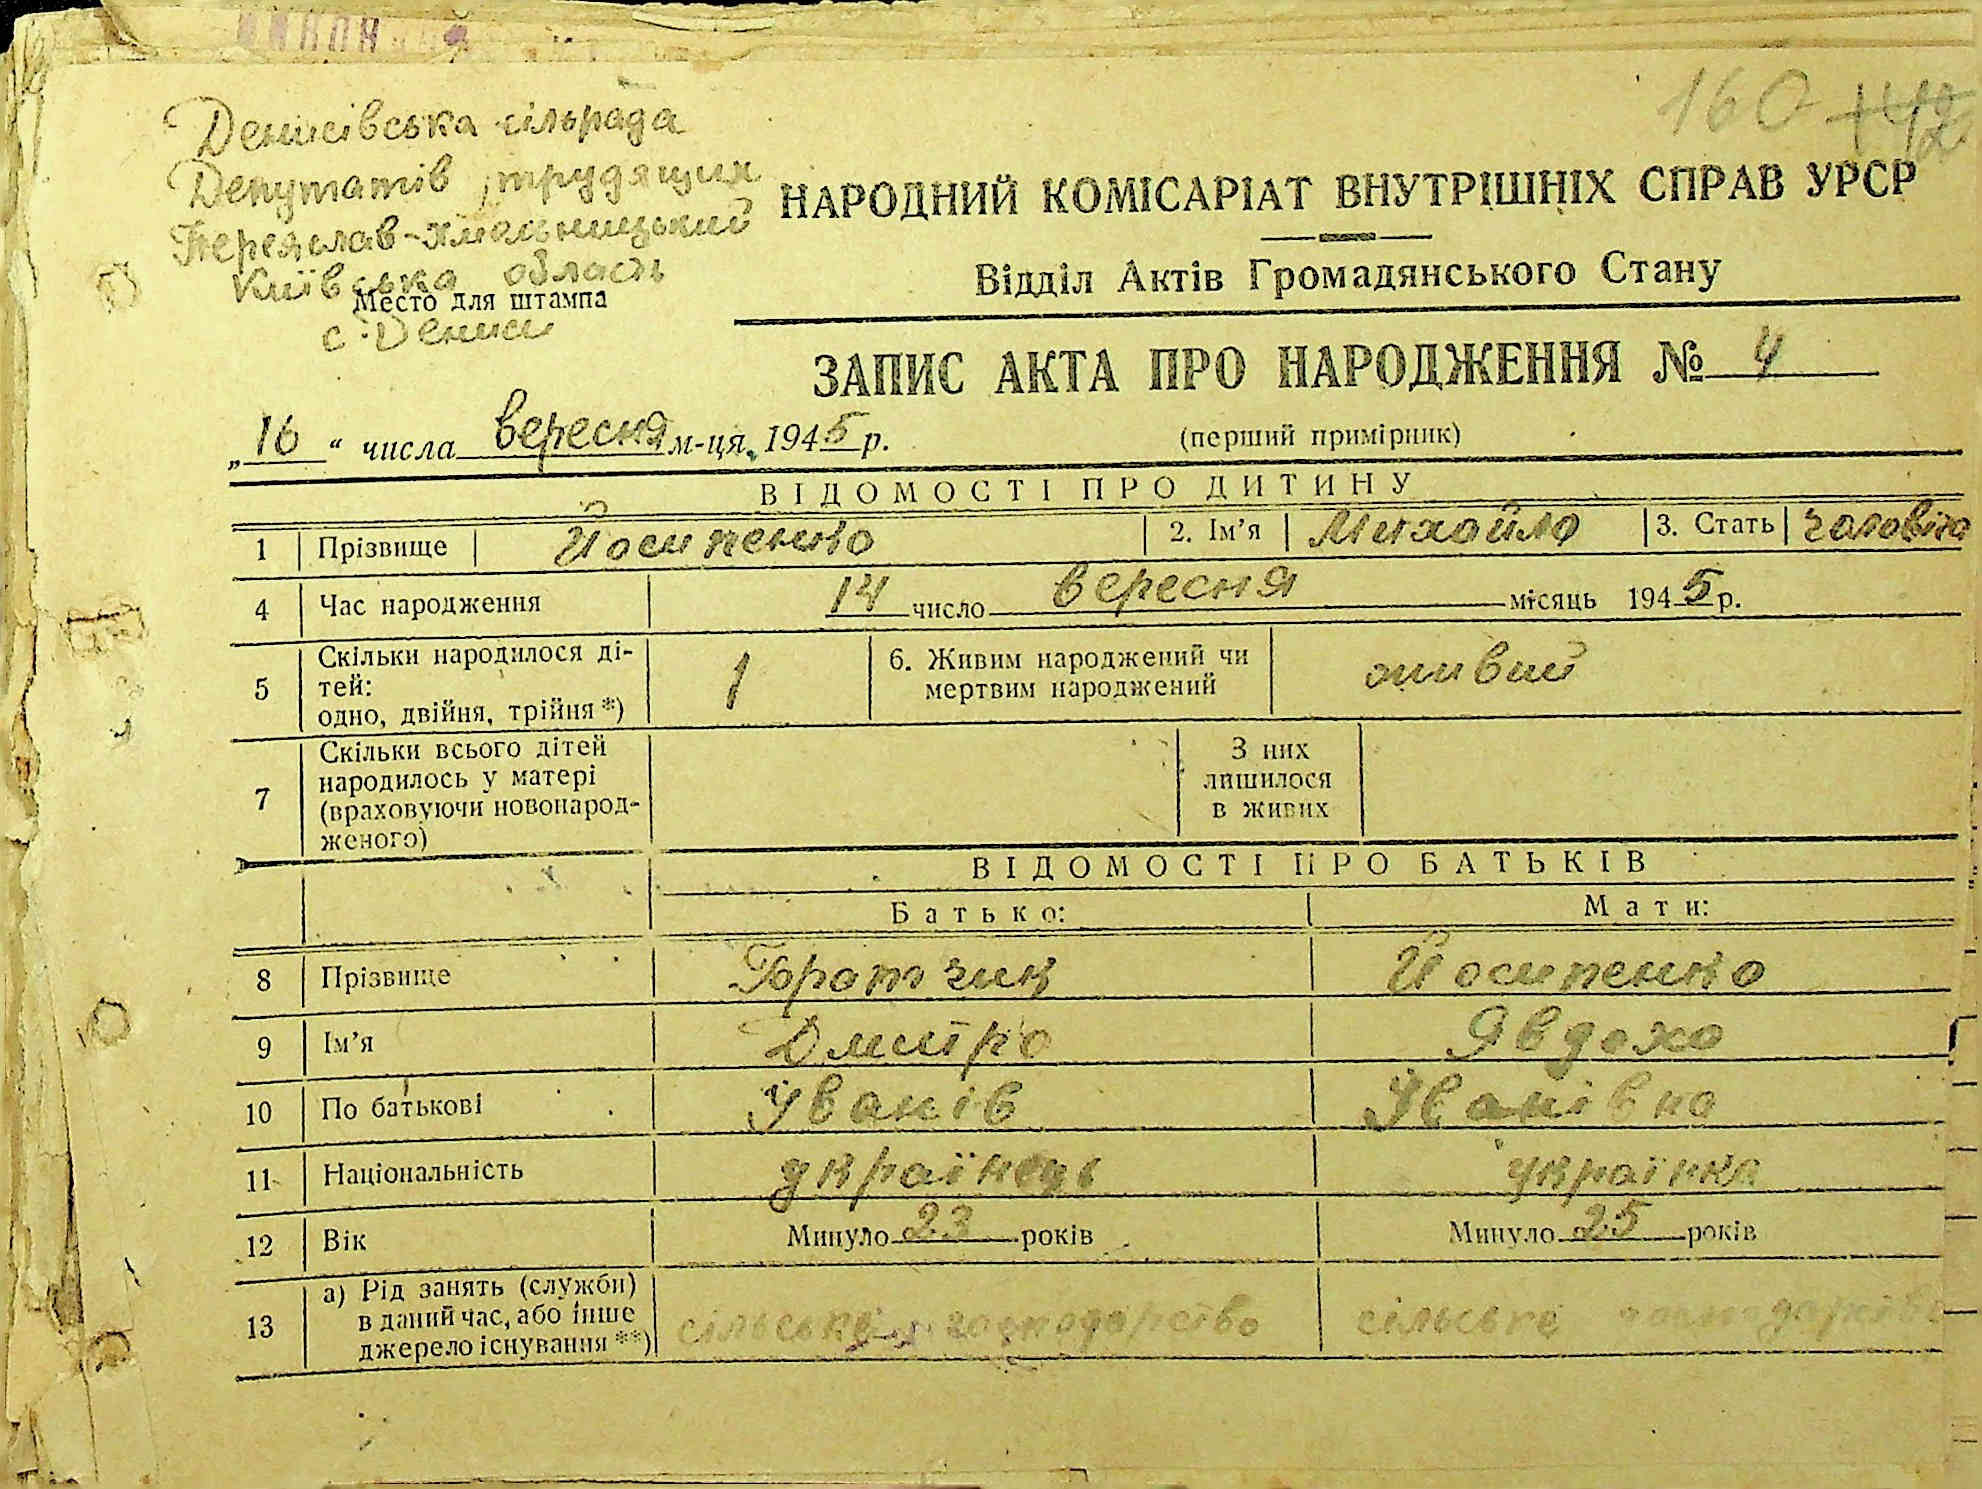 160 142
Денисівська сільрада
Депутатів трудящих
Переяслав-Хмельницький
Київська область
Место для штампа
с. Дениси
НАРОДНИЙ КОМІСАРІАТ ВНУТРІШНІХ СПРАВ УРСР
Відділ Актів Громадянського Стану
ЗАПИС АКТА ПРО НАРОДЖЕННЯ № 4
„16“ числа вересня м-ця, 1945 р.
(перший примірник)
ВІДОМОСТІ ПРО ДИТИНУ
1 Прізвище Йосипенко 2. Ім’я Михайло 3. Стать чоловіча
4 Час народження 14 число вересня місяць 1945 р.
5 Скільки народилося ді-
тей:
одно, двійня, трійня *)
1
6. Живим народжений чи
мертвим народжений
живий
7 Скільки всього дітей
народилось у матері
(враховуючи новонарод-
женого)
З них
лишилося
в живих
ВІДОМОСТІ ПРО БАТЬКІВ
Батько: Мати:
8 Прізвище Братчик Йосипенко
9 Ім’я Дмитро Явдоха
10 По батькові Іванів Іванівна
11 Національність українець українка
12 Вік Минуло 23 років Минуло 25 років
13 а) Рід занять (служби)
в даний час, або інше
джерело існування **)
сільське господарство сільське господарство